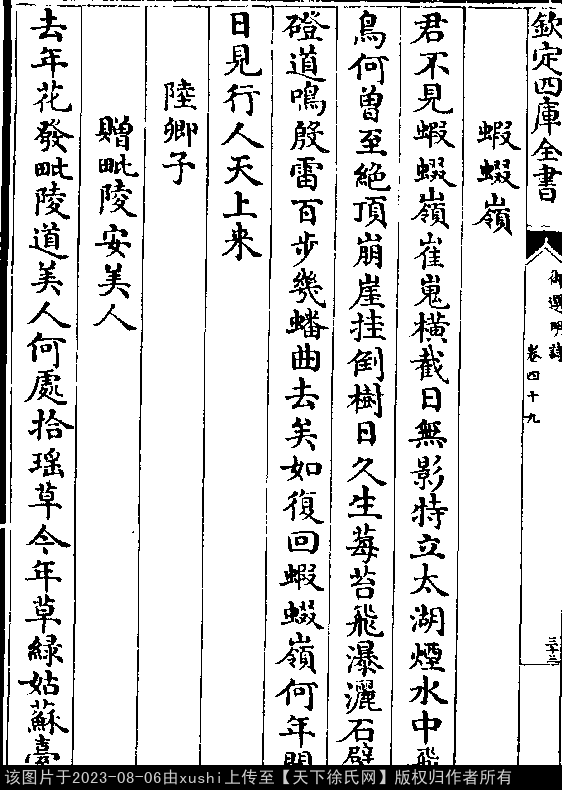 欽定四庫全書
御選明詩
卷四十九
三十三
蝦蝃嶺
君不見蝦蝃嶺崔嵬橫截日無影特立太湖煙水中飛
鳥何曽至絶頂崩崖挂倒樹日久生莓苔飛瀑灑石壁
磴道鳴殷雷百步幾蟠曲去矣如復回蝦蝃嶺何年開
日見行人天上来
陸卿子
贈毗陵安美人
去年花發毗陵道美人何處拾瑶草今年草緑姑蘇臺
该图片于2023-08-06由xushi上传至【天下徐氏网】版权归作者所有